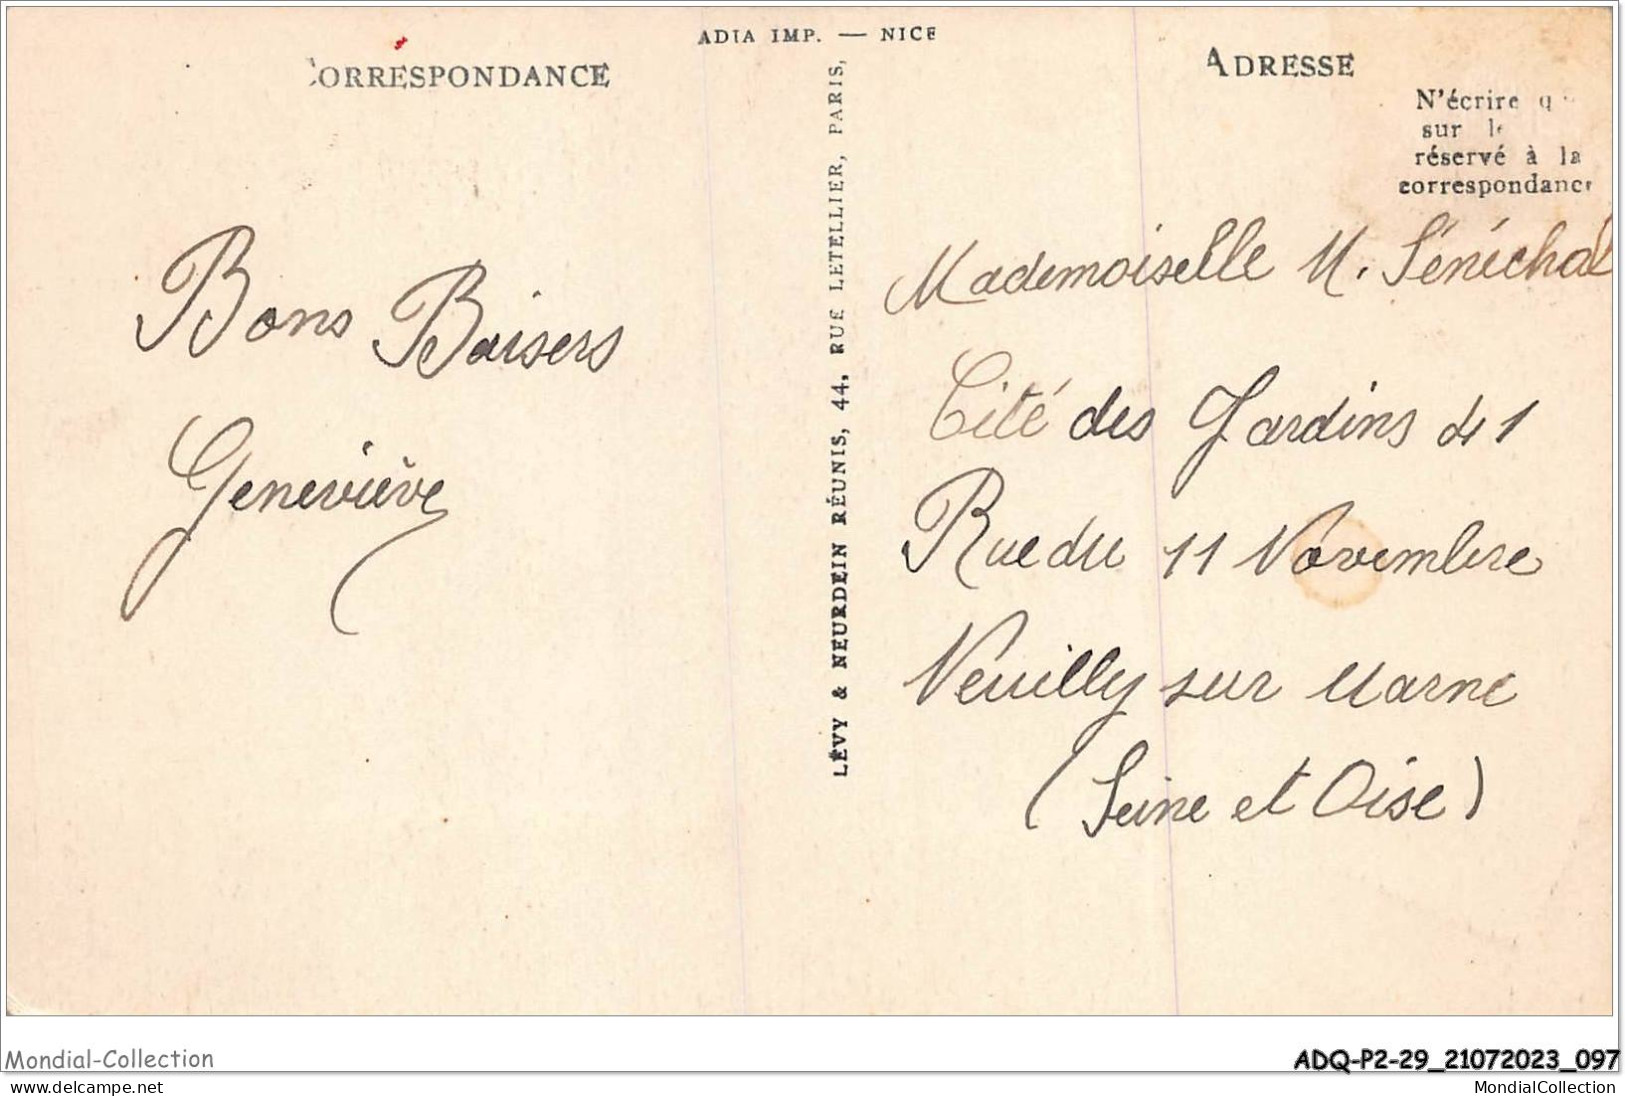 ADIA IMP. — NICE
CORRESPONDANCE
ADRESSE
N'écrire
sur le
réservé à la
correspondance
Bons Baisers
Geneviève
LÉVY & NEURDEIN RÉUNIS, 44, RUE LETELLIER, PARIS,
Mademoiselle M. Sénéchal
Cité des Jardins 41
Rue du 11 Novembre
Neuilly sur Marne
(Seine et Oise)
Mondial-Collection
ADQ-P2-29_21072023_097
www.delcampe.net
MondialCollection